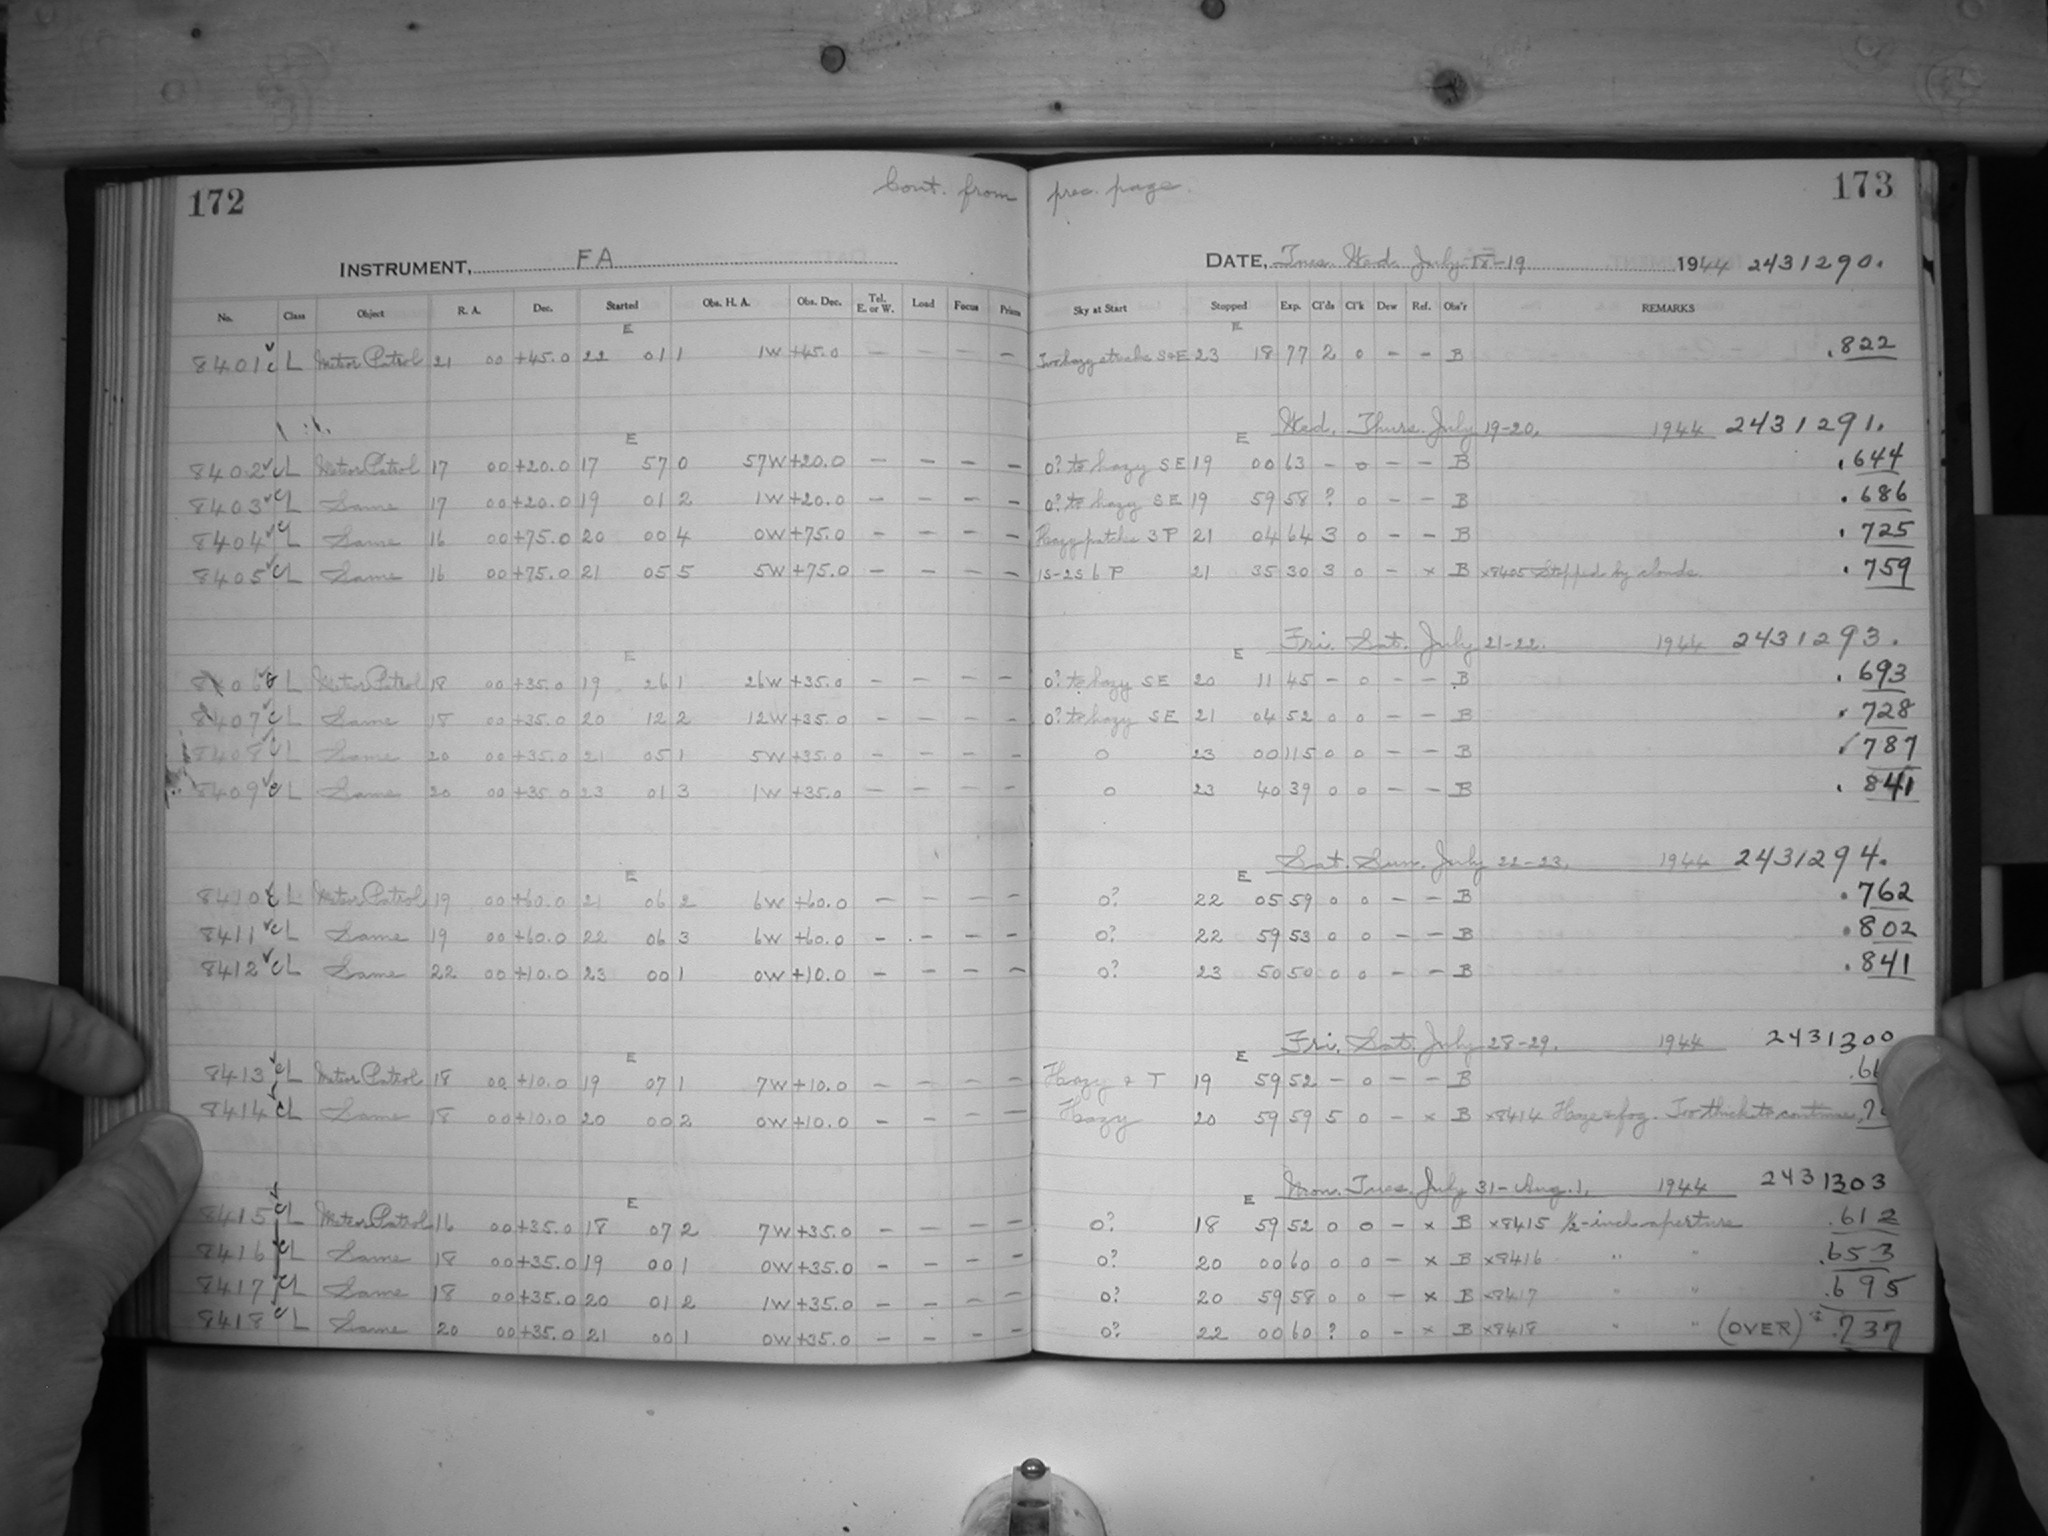 172 Cont. from prec. page. 173
INSTRUMENT, FA DATE, Tues. Wed. July 18-19 1944 2431290.
No. Class Object R. A. Dec. Started Obs. H. A. Obs. Dec. Tel. E. or W. Load Focus Prism Sky at Start Stopped Exp. Cl'ds Cl'k Dew Ref. Obs'r REMARKS
E E
8401 c L Meteor Patrol 21 00 +45.0 22 01 1 1W +45.0 — — — — Two hazy streaks S+E 23 18 77 2 0 — — B .822
Wed. Thurs. July 19-20, 1944 2431291.
E E
8402 c L Meteor Patrol 17 00 +20.0 17 57 0 57W +20.0 — — — — 0? to hazy SE 19 00 63 — 0 — — B .644
8403 c L Same 17 00 +20.0 19 01 2 1W +20.0 — — — — 0? to hazy SE 19 59 58 ? 0 — — B .686
8404 c L Same 16 00 +75.0 20 00 4 0W +75.0 — — — — Hazy patches 3 P 21 04 64 3 0 — — B .725
8405 c L Same 16 00 +75.0 21 05 5 5W +75.0 — — — — 1S-2S 6 P 21 35 30 3 0 — x B x8405 Stopped by clouds. .759
Fri. Sat. July 21-22. 1944 2431293.
E E
8406 c L Meteor Patrol 18 00 +35.0 19 26 1 26W +35.0 — — — — 0? to hazy SE 20 11 45 — 0 — — B .693
8407 c L Same 18 00 +35.0 20 12 2 12W +35.0 — — — — 0? to hazy SE 21 04 52 0 0 — — B .728
8408 c L Same 20 00 +35.0 21 05 1 5W +35.0 — — — — 0 23 00 115 0 0 — — B .787
8409 c L Same 20 00 +35.0 23 01 3 1W +35.0 — — — — 0 23 40 39 0 0 — — B .841
Sat. Sun. July 22-23, 1944 2431294.
E E
8410 c L Meteor Patrol 19 00 +60.0 21 06 2 6W +60.0 — — — — 0? 22 05 59 0 0 — — B .762
8411 c L Same 19 00 +60.0 22 06 3 6W +60.0 — — — — 0? 22 59 53 0 0 — — B .802
8412 c L Same 22 00 +10.0 23 00 1 0W +10.0 — — — — 0? 23 50 50 0 0 — — B .841
Fri. Sat. July 28-29. 1944 2431300
E E
8413 c L Meteor Patrol 18 00 +10.0 19 07 1 7W +10.0 — — — — Hazy + T 19 59 52 — 0 — — B .6
8414 c L Same 18 00 +10.0 20 00 2 0W +10.0 — — — — Hazy 20 59 59 5 0 — x B x8414 Haze & fog. Too thick to continue. .7
Mon. Tues. July 31-Aug. 1, 1944 2431303
E E
8415 c L Meteor Patrol 16 00 +35.0 18 07 2 7W +35.0 — — — — 0? 18 59 52 0 0 — x B x8415 ½-inch aperture .612
8416 c L Same 18 00 +35.0 19 00 1 0W +35.0 — — — — 0? 20 00 60 0 0 — x B x8416 " " .653
8417 c L Same 18 00 +35.0 20 01 2 1W +35.0 — — — — 0? 20 59 58 0 0 — x B x8417 " " .695
8418 c L Same 20 00 +35.0 21 00 1 0W +35.0 — — — — 0? 22 00 60 ? 0 — x B x8418 " " (OVER) .737